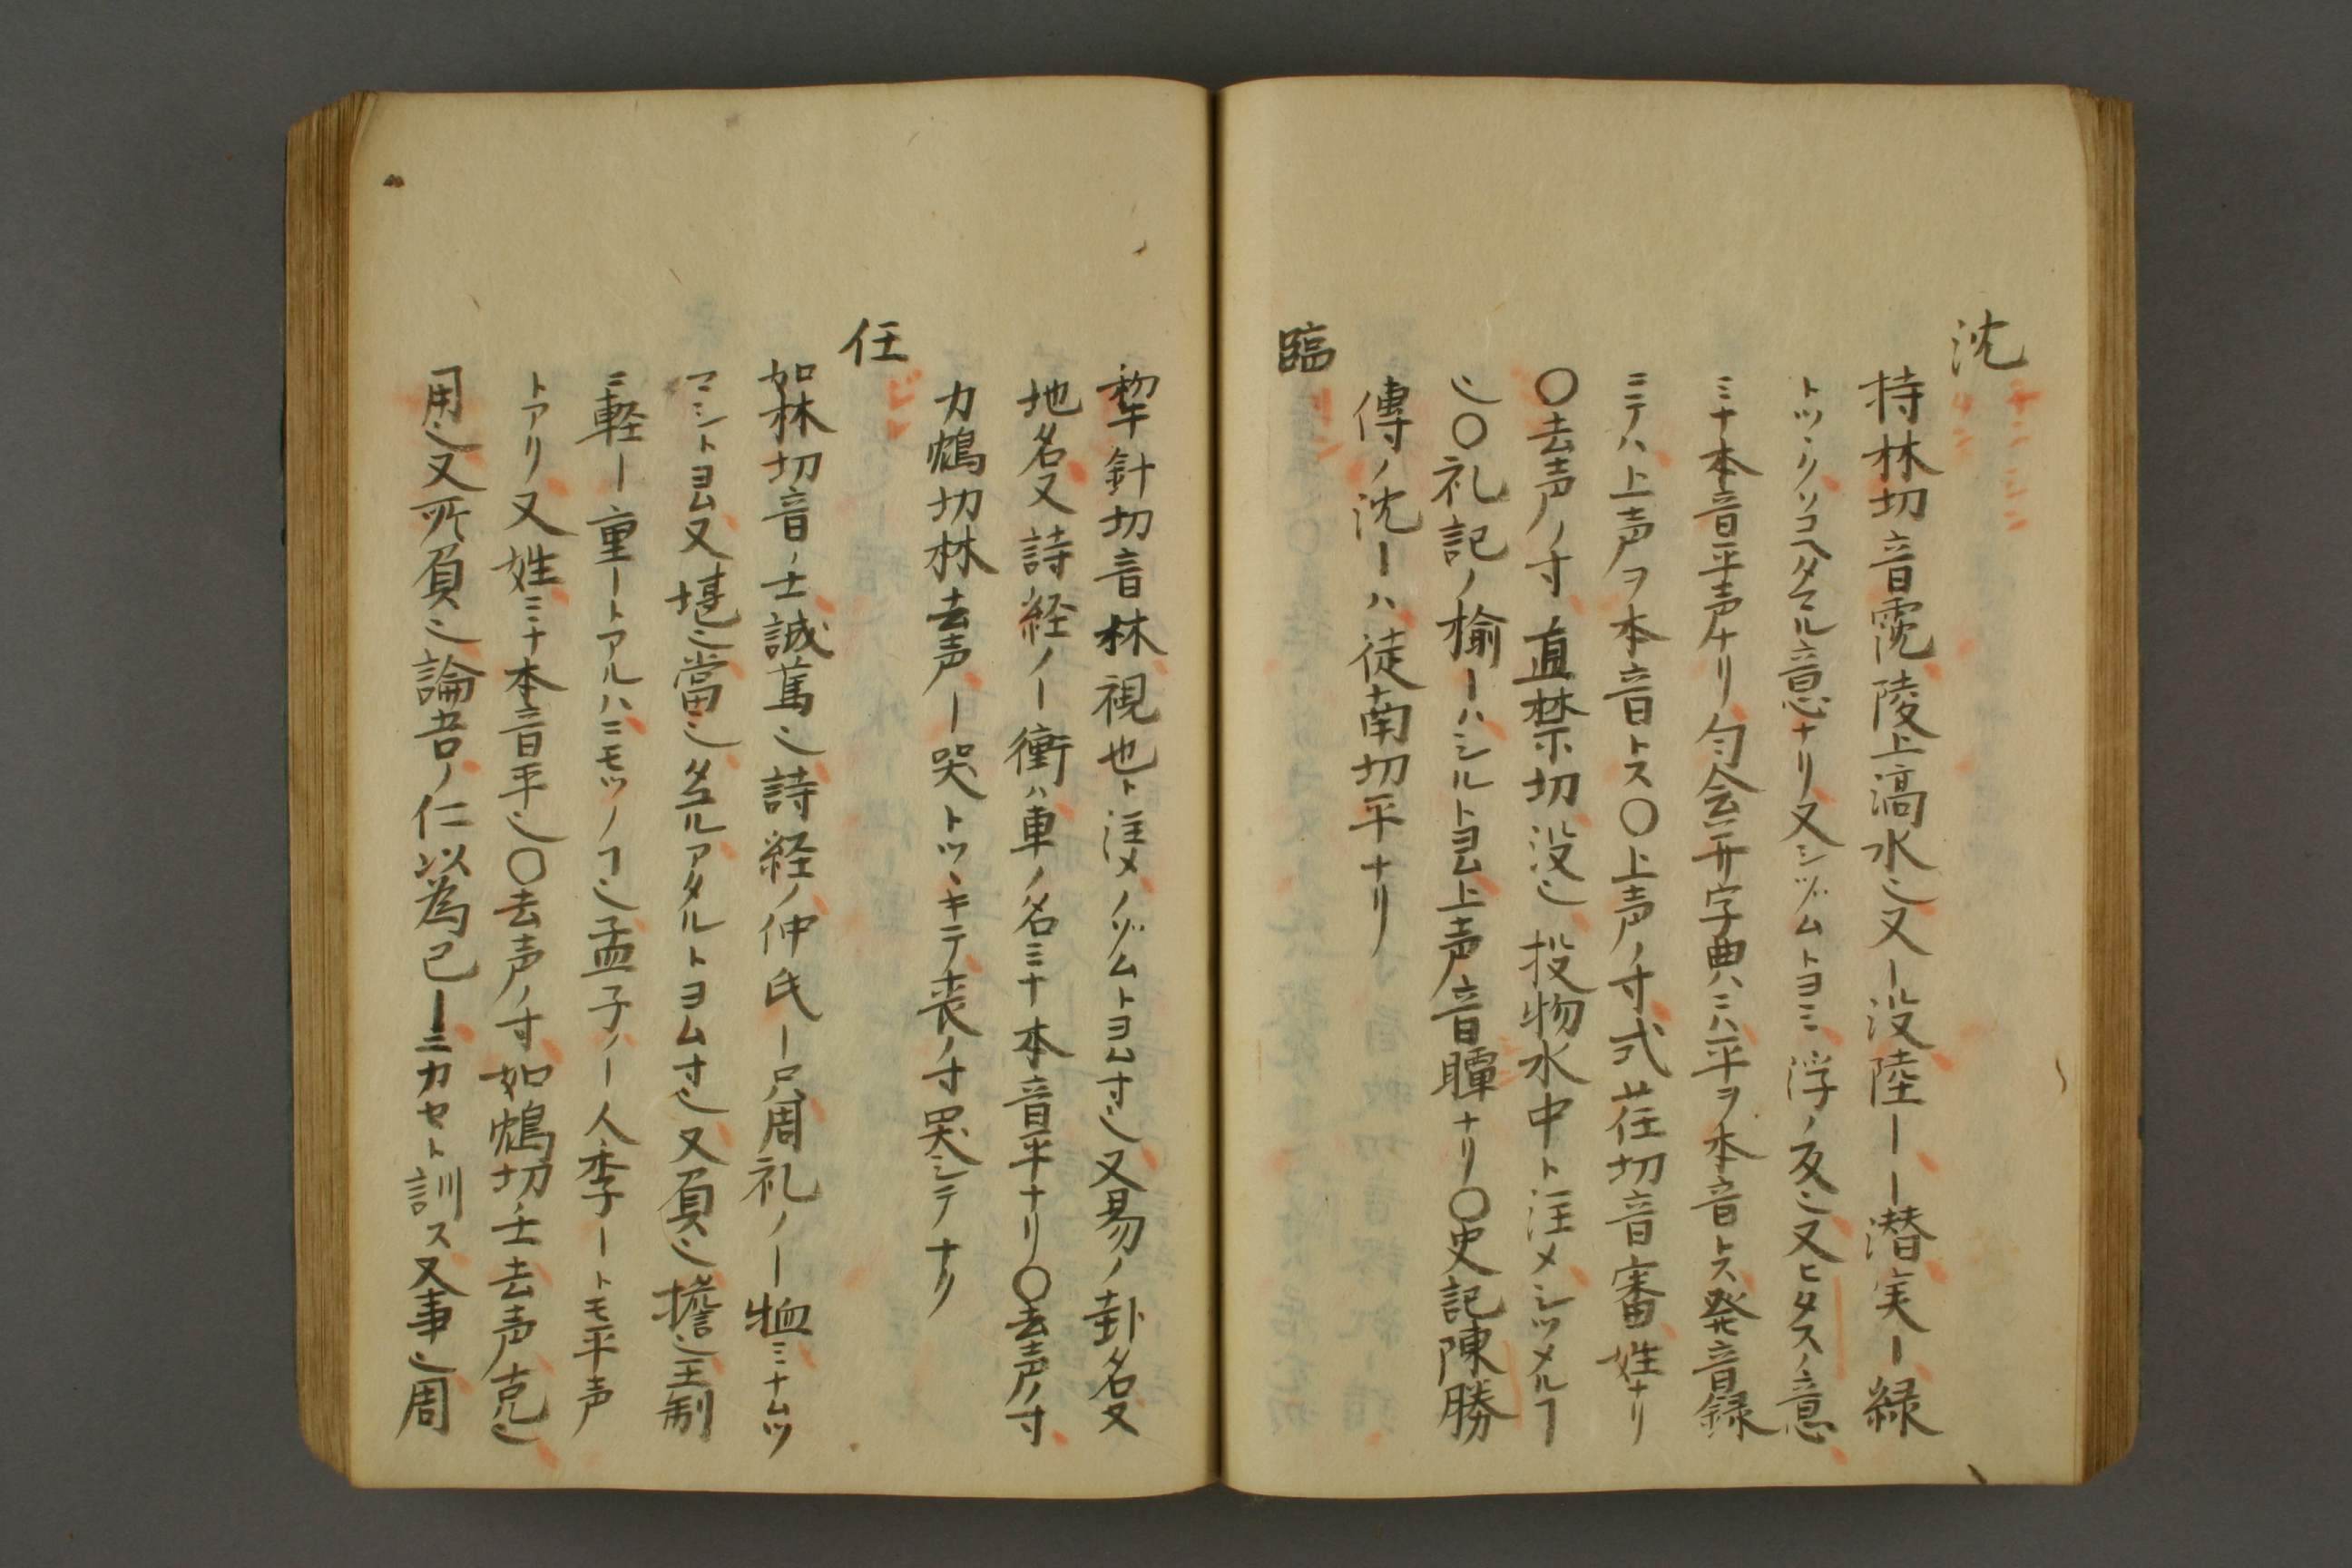 沈
チン シン
持林切音霃陵上滈水也又ー没陸ーー潜実ー緑
トツヽリソコヘタマル意ナリ又シヅムトヨミ浮ノ反也又ヒタスノ意
ミナ本音平声ナリ匀会并字典ハミハ平ヲ本音トス発音録
ニテハ上声ヲ本音トス〇上声ノ寸式荏切音審姓ナリ
〇去声ノ寸直禁切没也投物水中ト注メシツメルヿ
也〇礼記ノ揄ーハシルトヨム上声音瞫ナリ〇史記陳勝
傳ノ沈ーハ徒南切平ナリ
臨
犂針切音林視也ト注メノゾムトヨム寸也又易ノ卦名又
地名又詩経ノー衝ハ車ノ名ミナ本音平ナリ〇去声ノ寸
力鴆切林去声ー哭トツヽキテ喪ノ寸哭シテナリ
任
如林切音ノ士誠篤也詩経ノ仲氏ー只周礼ノー恤ミナムツ
マシトヨム又堪也當也タヱルアタルトヨム寸也又負也擔也王制
ニ軽ー重ートアルハニモツノヿ也孟子ノー人李ートモ平声
トアリ又姓ミナ本音平也〇去声ノ寸如鴆切士去声克也
用也又所負也論吾ノ仁以為己ーニカセト訓ス又事也周